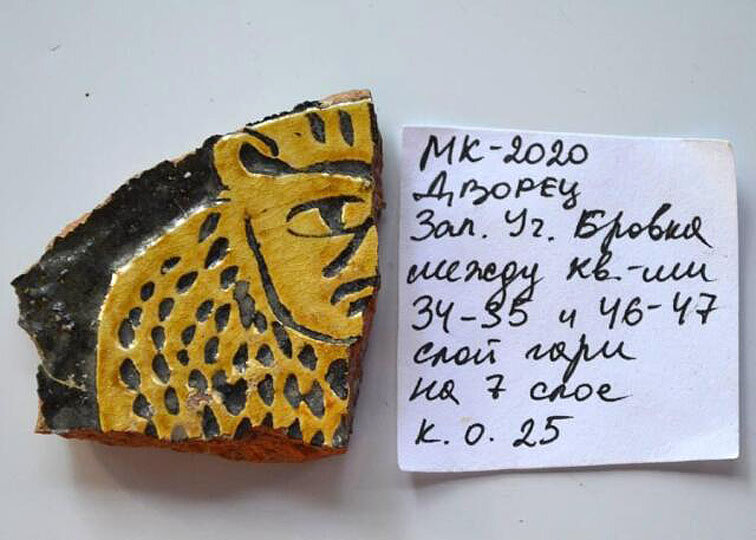 МК-2020
ДВОРЕЦ
Зап. Уг. Бровка
между кв.-ми
34-35 и 46-47
слой гари
на 7 слое
К. О. 25